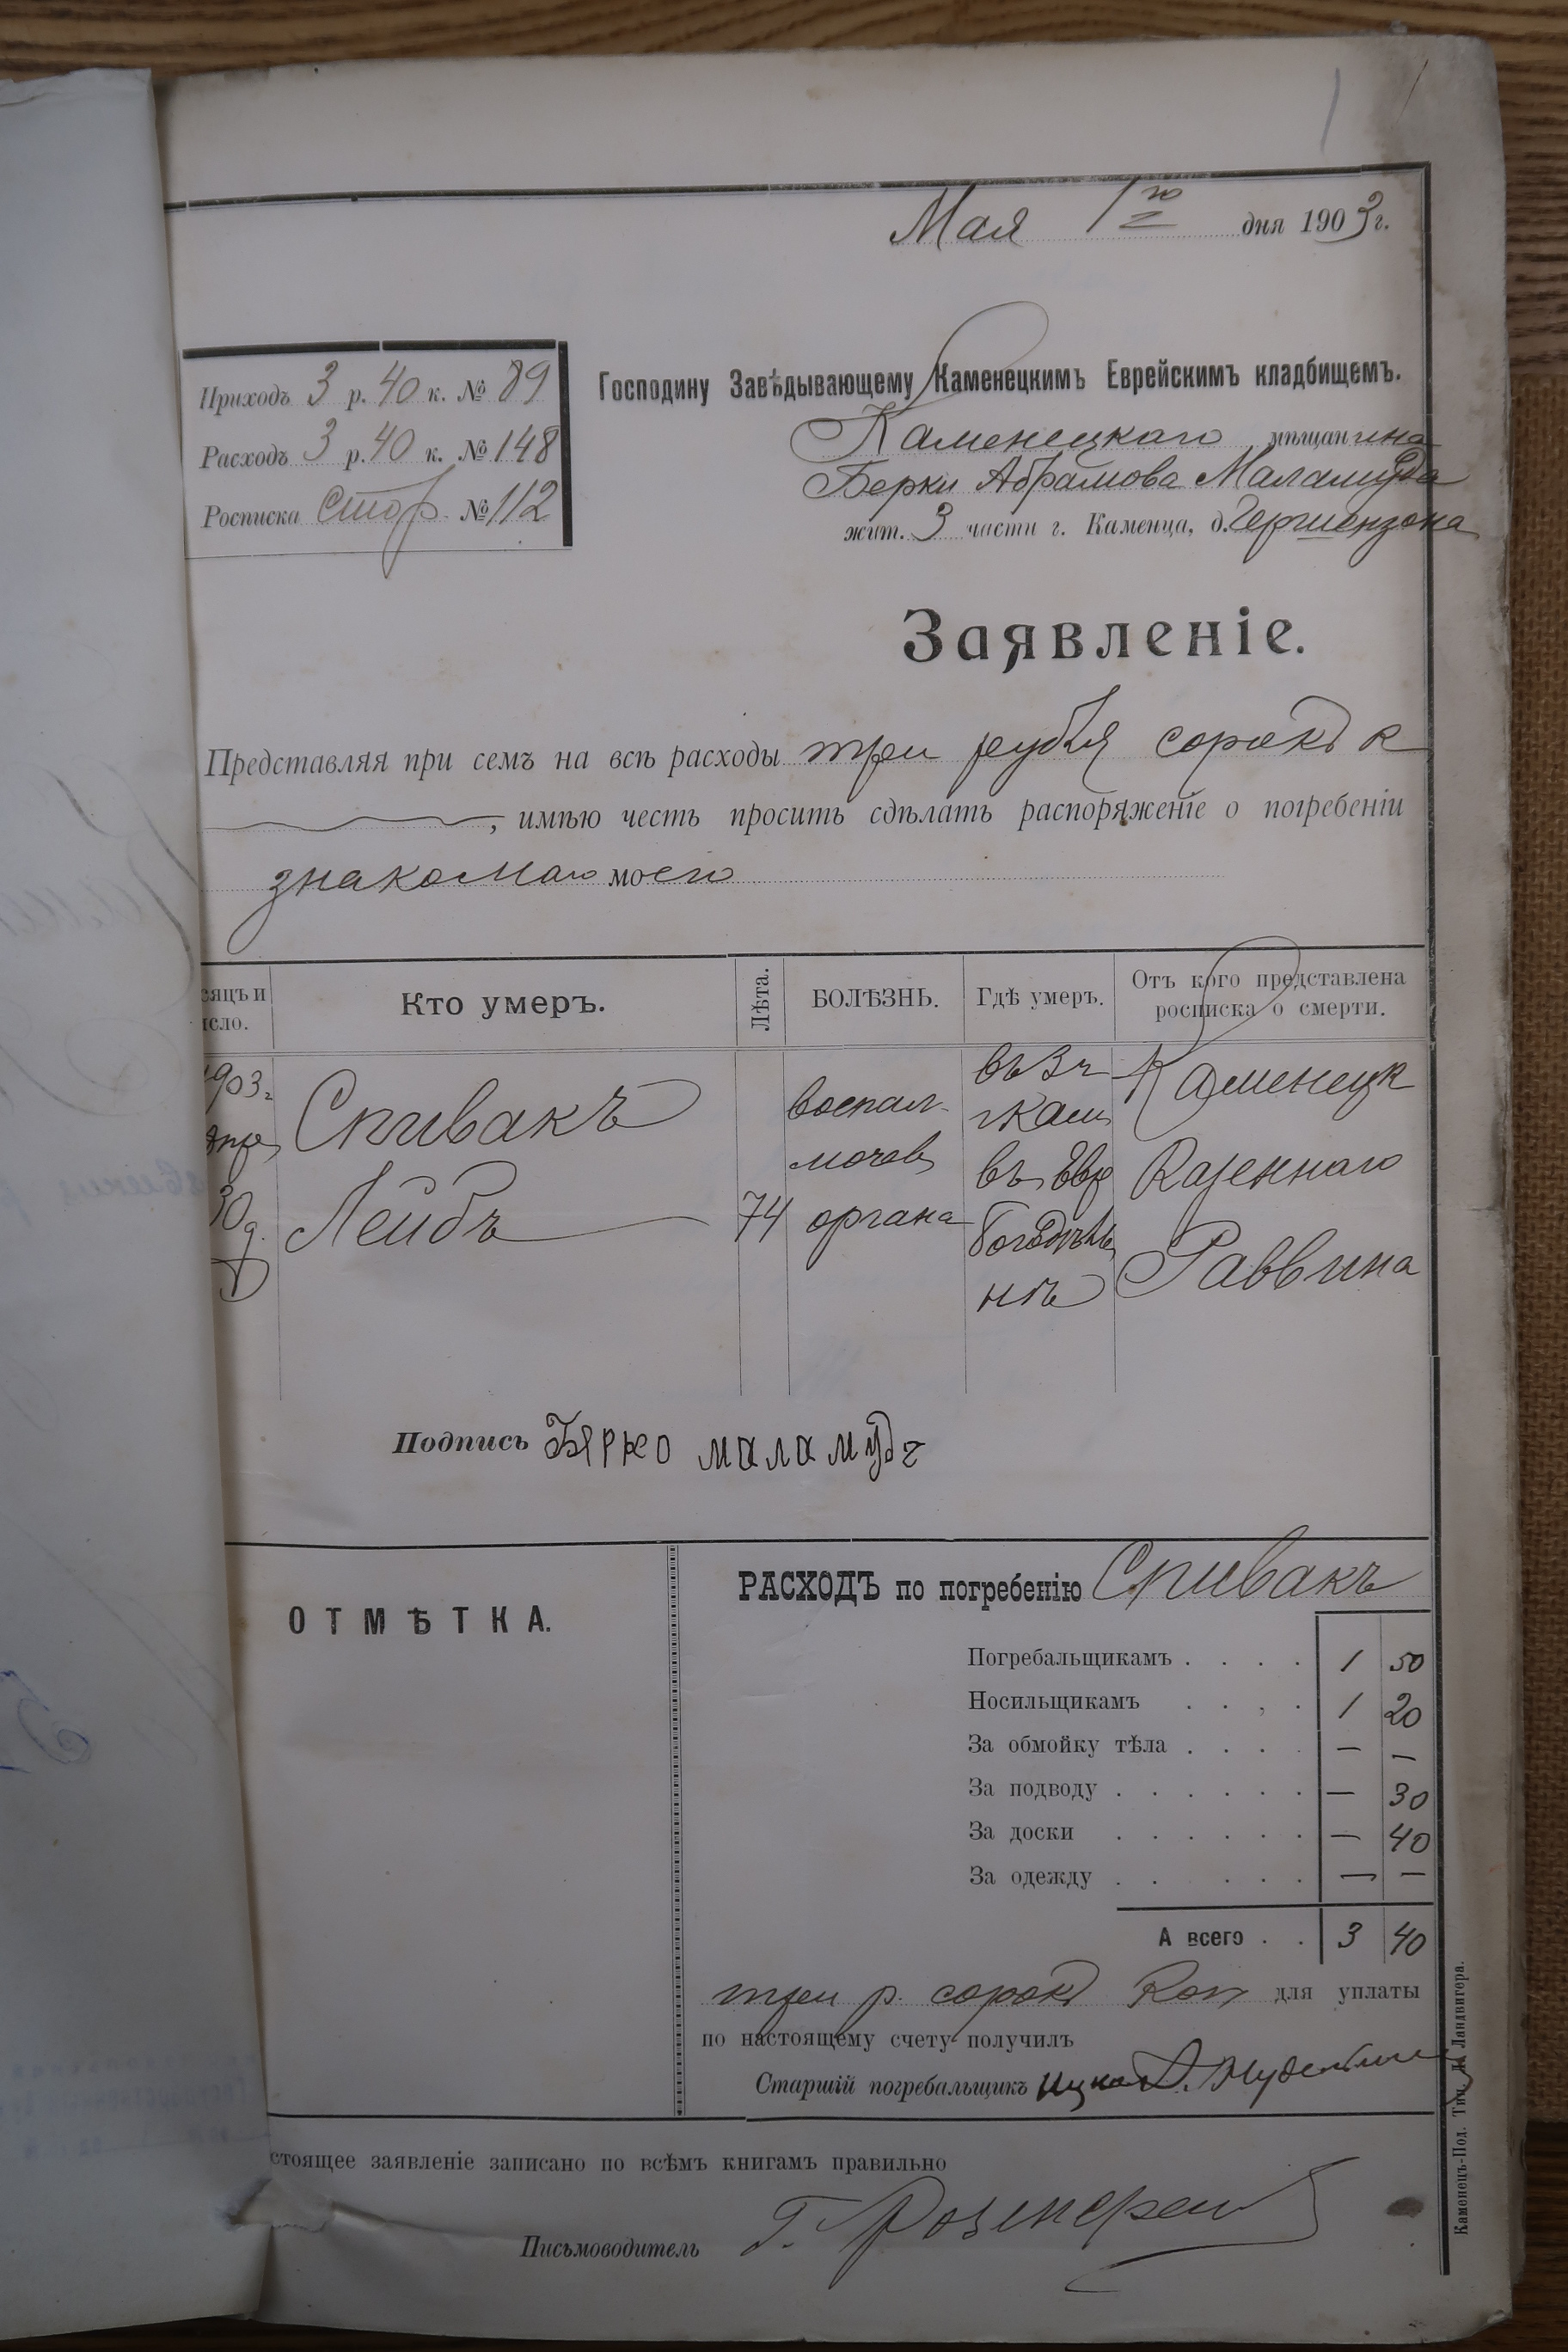 1
Мая 1го дня 1903 г.
Приходъ 3 р. 40 к. № 89
Расходъ 3 р. 40 к. № 148
Росписка стор. № 112
Господину Завѣдывающему Каменецкимъ Еврейскимъ кладбищемъ.
Каменецкаго мѣщанина
Берки Абрамова Маламуда
жит. 3 части г. Каменца, д. Гершензона
Заявленіе.
Представляя при семъ на всѣ расходы три рубля сорокъ к
, имѣю честь просить сдѣлать распоряженіе о погребеніи
знакомаго моего
сяцъ и
исло.
Кто умеръ.
Лѣта.
БОЛѢЗНЬ.
Гдѣ умеръ.
Отъ кого представлена
росписка о смерти.
1903г.
Апр
30 д.
Спивакъ
Лейбъ
74
воспал.
мочев
органа
въ 3 ч
г Кам
въ Евр
богодѣль
нѣ
Каменецк
Казеннаго
Раввина
Подпись Берко маламуд
ОТМѢТКА.
РАСХОДЪ по погребенію Спивакъ
Погребальщикамъ . . . . 1 50
Носильщикамъ . . , . 1 20
За обмойку тѣла . . . . — —
За подводу . . . . . . — 30
За доски . . . . . . — 40
За одежду . . . . . . — —
А всего . . 3 40
три р. сорокъ коп для уплаты
по настоящему счету получилъ
Старшій погребальщикъ Ицко
стоящее заявленіе записано по всѣмъ книгамъ правильно
Письмоводитель Г. Розенкрей
Каменецъ-Под. Тип. Ландвигера.